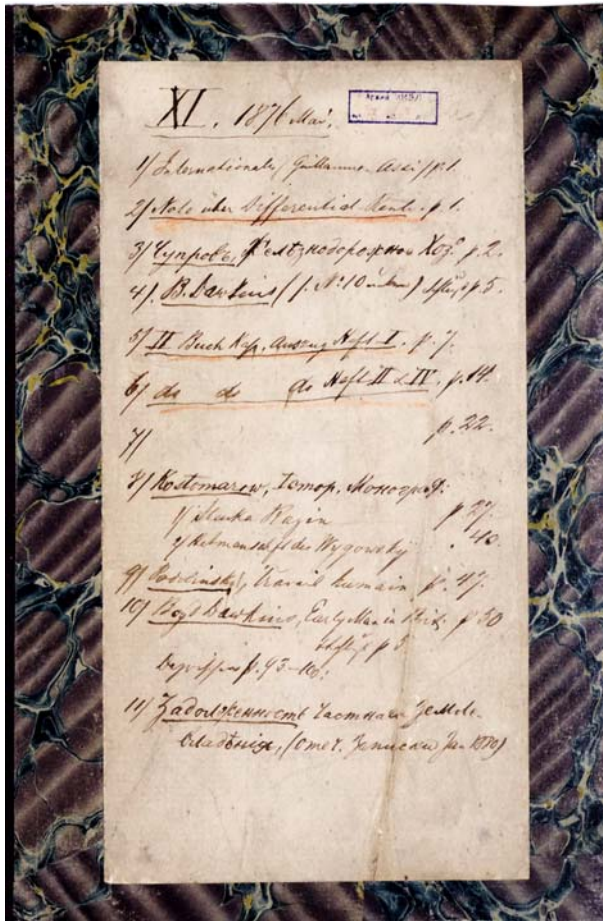 XI. 1876 Mai.
1/ Internationale/ Guillaume- Assi/ p. 1.
2/ Note über Differential Rente. p. 1.
3/ Чупровъ, Желѣзнодорожное Хоз. p. 2.
4/. B. Dawkins ( f. N: 10 ) p 5.
5/ II Buch Kap. Auszug Heft I. p. 7.
6/ do do do Heft II & IV. p. 14.
7/ p. 22.
8/ Kostomarow, Истор. Моногр.
1/ Stenka Razin p 27.
2/ Hetmanschaft des Wygowsky . 40.
9/ Podolinsky, Travail humain p. 47.
10/ Boyd Dawkins, Early Man in Brit. p 50
p 5
p. 93-
11/ Задолженность Частнаго Землe-
владѣнія, (Отеч. Записки Jan 1880)